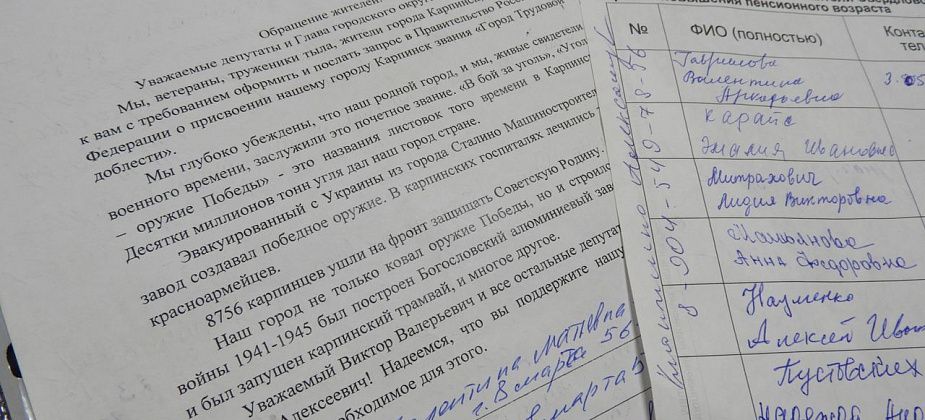 Обращение жителей
Уважаемые депутаты и Глава городского окру
Мы, ветераны, труженики тыла, жители города Карпинска
к вам с требованием оформить и послать запрос в Правительство Росс
Федерации о присвоении нашему городу Карпинск звания «Город Трудовой
доблести».
Мы глубоко убеждены, что наш родной город, и мы, живые свидетели
военного времени, заслужили это почетное звание. «В бой за уголь», «Угол
– оружие Победы» - это названия листовок того времени в Карпинс
Десятки миллионов тонн угля дал наш город стране.
Эвакуированный с Украины из города Сталино Машиностроител
завод создавал победное оружие. В карпинских госпиталях лечились
красноармейцев.
8756 карпинцев ушли на фронт защищать Советскую Родину.
Наш город не только ковал оружие Победы, но и строил
войны 1941-1945 был построен Богословский алюминиевый зав
и был запущен карпинский трамвай, и многое другое.
Уважаемый Виктор Валерьевич и все остальные депутат
Алексеевич! Надеемся, что вы поддержите нашу
обходимое для этого.
8 марта 56
марта
пенсионного возраста
№
ФИО (полностью)
Конта
тел
Гаврилова
Валентина
Аркадьевна
Эмалия Ивановна
Митрахович
Лидия Викторовна
Анна Федоровна
Науменко
Алексей Иван
Пустовских
8-904-549-78-96